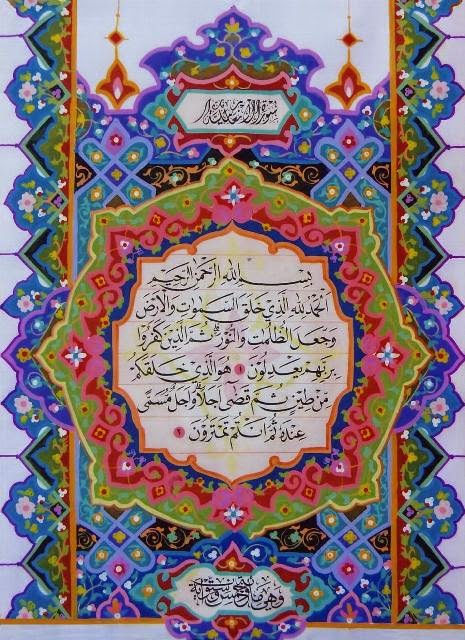 سورة الأنعام
بِسْمِ اللهِ الرَّحْمٰنِ الرَّحِيمِ
اَلْحَمْدُ لِلّٰهِ الَّذِي خَلَقَ السَّمٰوَاتِ وَالْأَرْضَ
وَجَعَلَ الظُّلُمَاتِ وَالنُّورَ ثُمَّ الَّذِينَ كَفَرُوا
بِرَبِّهِمْ يَعْدِلُونَ ١ هُوَ الَّذِي خَلَقَكُمْ
مِنْ طِينٍ ثُمَّ قَضَى أَجَلًا وَأَجَلٌ مُسَمًّى
عِنْدَهُ ثُمَّ أَنْتُمْ تَمْتَرُونَ ٢
وهي مائة وخمس وستون آية